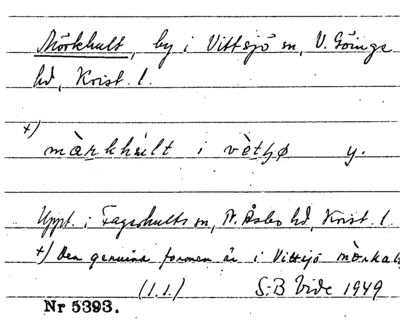 Mörkhult, by i Vittsjö sn, V. Göinge
hd, Krist. l.
+)
màrkhúlt i vètʃø y.
Uppt. i Fagerhults sn, N. Åsbo hd, Krist. l.
+) Den genuina formen är i Vittsjö mòrkal
(l.l.) S-B Vide 1949
Nr 5393.